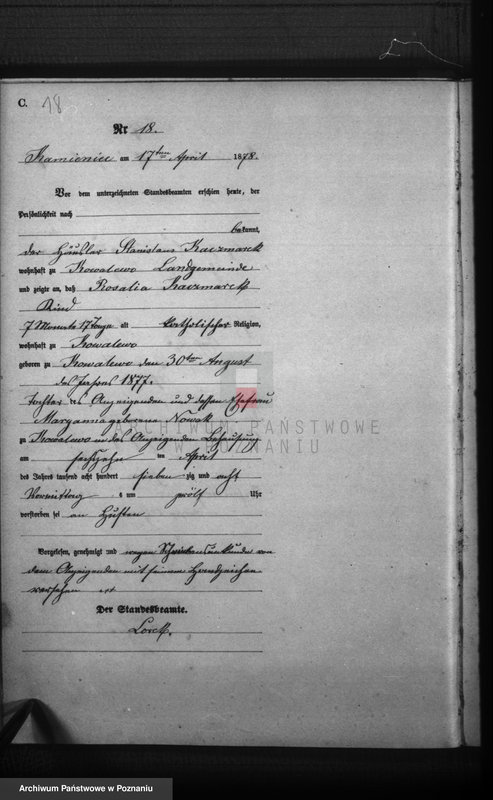 C. 18
Nr 18.
Kamieniec am 17ten April 1878.
Vor dem unterzeichneten Standesbeamten erschien heute, der
Persönlichkeit nach
bekannt,
der Häusler Stanislaus Kaczmarek
wohnhaft zu Kowalewo Landgemeinde
und zeigte an, daß Rosalia Kaczmarek
Kind
7 Monate 17 Tage alt katholischer Religion,
wohnhaft zu Kowalewo
geboren zu Kowalewo den 30ten August
des Jahres 1877.
Tochter des Anzeigenden und dessen Ehefrau
Maryanna geborene Nowak
zu Kowalewo in des Anzeigenden Behausung
am sechszehn ten April
des Jahres tausend acht hundert sieben zig und acht
Vormittag s um zwölf Uhr
verstorben sei an Husten
Vorgelesen, genehmigt und wegen Schreibensunkunde von
dem Anzeigenden mit seinem Handzeichen
versehen xxx
Der Standesbeamte.
ARCHIWUM PAŃSTWOWE
W POZNANIU
Archiwum Państwowe w Poznaniu